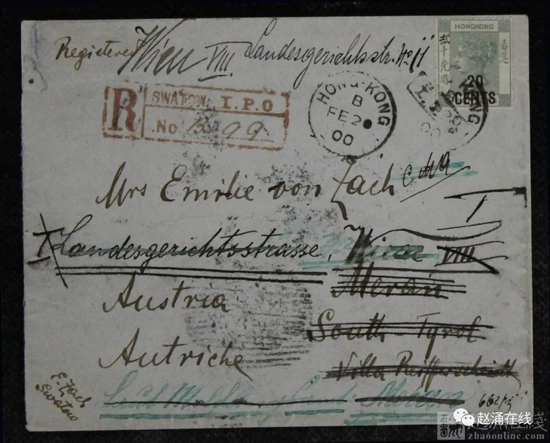 Registered Wien VIII Landesgerichtsstr. No 11
HONGKONG
20
CENTS
R SWATOW. I.P.O
No. 99
HONG-KONG
B
FE 2
00
KONG
00
Mrs Emilie von Zach
Landesgerichtsstrasse, Wien VIII
I
Austria Meran
South Tyrol
Autriche
Villa
E. Zach
Swatow
赵涌在线
zhaoonline.com